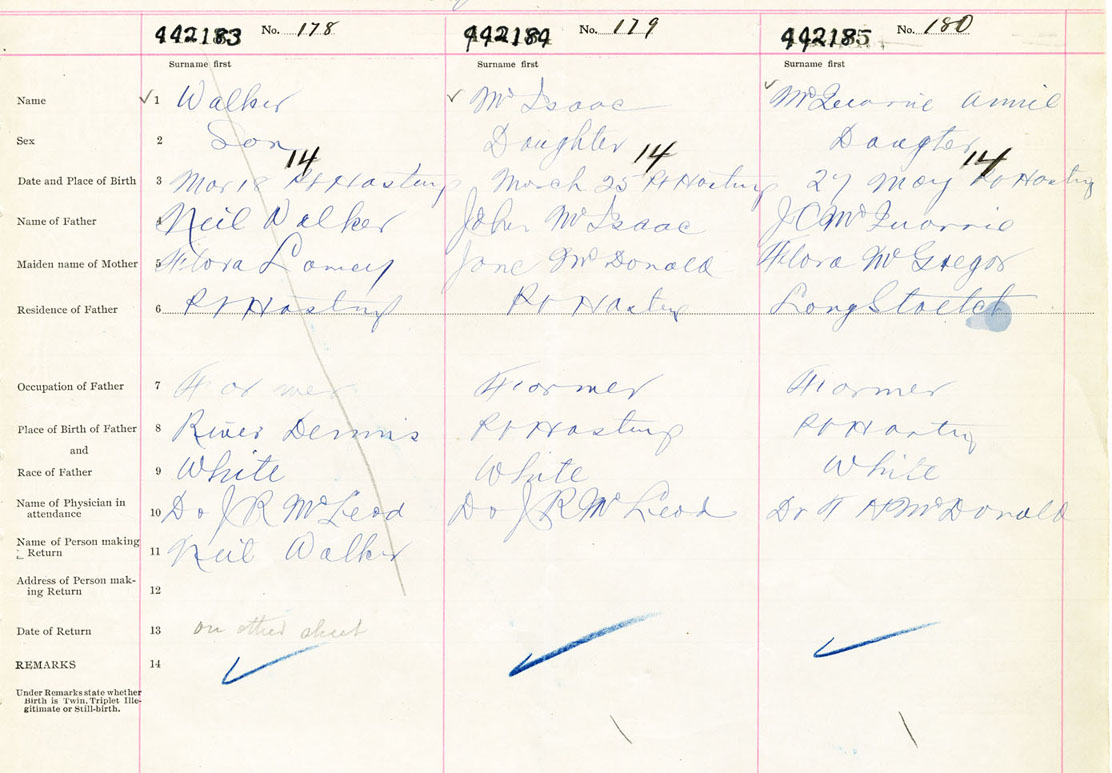 442183 No. 178 442184 No. 179 442185 No. 180
Surname first Surname first Surname first
Name 1 Walker Mc Isaac McQuarrie Annie
Sex 2 Son Daughter Daugter
14 14 14
Date and Place of Birth 3 Mar 18 Pt Hasting March 25 Pt Hasting 27 May Pt Hasting
Name of Father 4 Neil Walker John McIsaac J C McQuarrie
Maiden name of Mother 5 Flora Lamey Jane McDonald Flora McGregor
Residence of Father 6 Pt Hasting Pt Hasting Long Stretch
Occupation of Father 7 Farmer Farmer Farmer
Place of Birth of Father 8 River Dennis Pt Hasting Pt Hasting
and
Race of Father 9 White White White
Name of Physician in
attendance 10 Dr J R McLeod Dr J R McLeod Dr McDonald
Name of Person making
Return 11 Neil Walker
Address of Person mak-
ing Return 12
Date of Return 13 on other sheet
REMARKS 14
Under Remarks state whether
Birth is Twin, Triplet Ille-
gitimate or Still-birth.